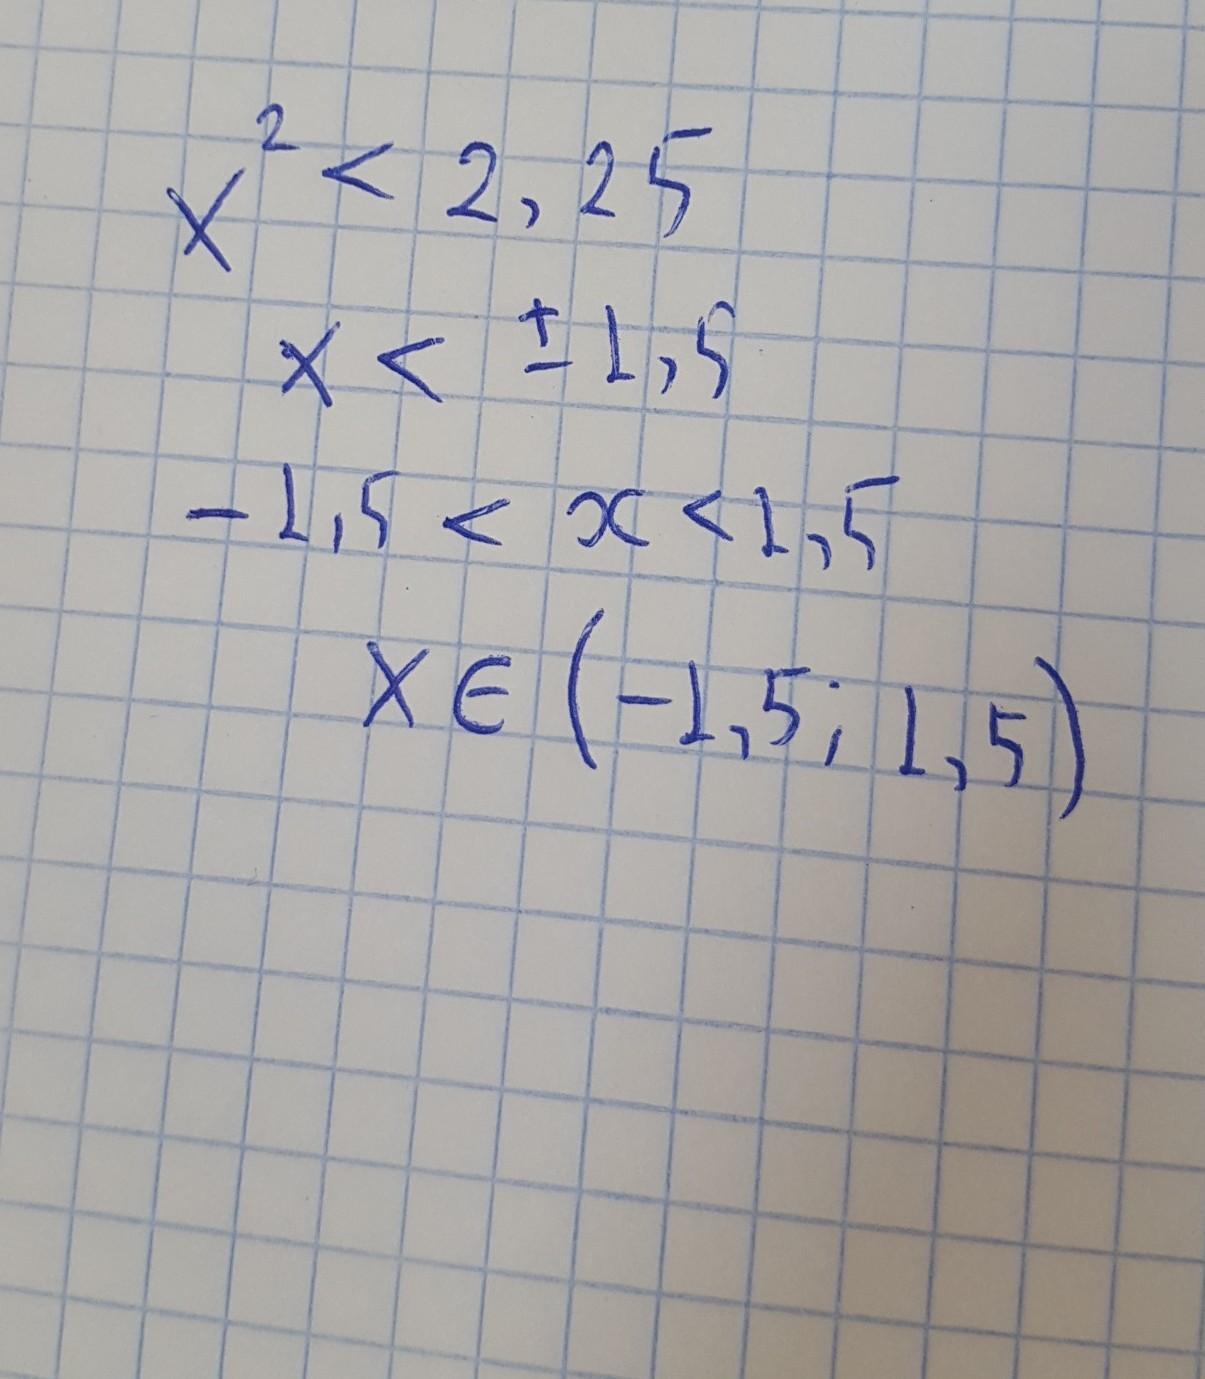 x² < 2,25
x < ±1,5
-1,5 < x < 1,5
x ∈ (-1,5; 1,5)